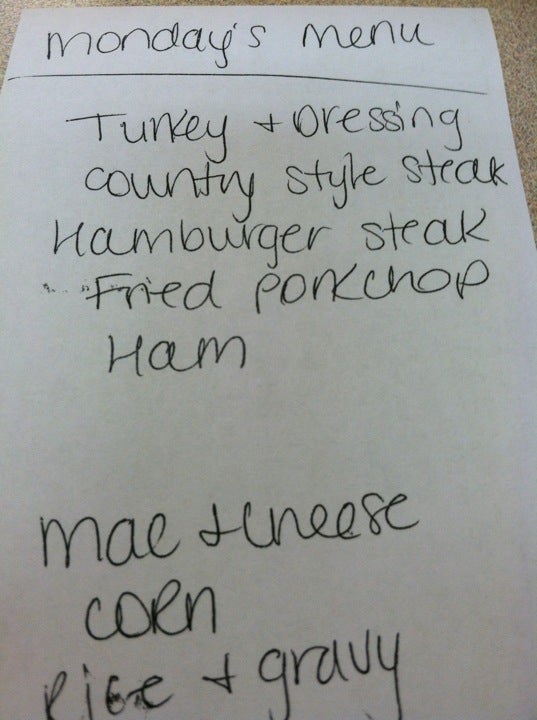 Monday's menu
Turkey + Dressing
country style steak
Hamburger steak
Fried porkchop
Ham
mac + cheese
corn
Rice + gravy